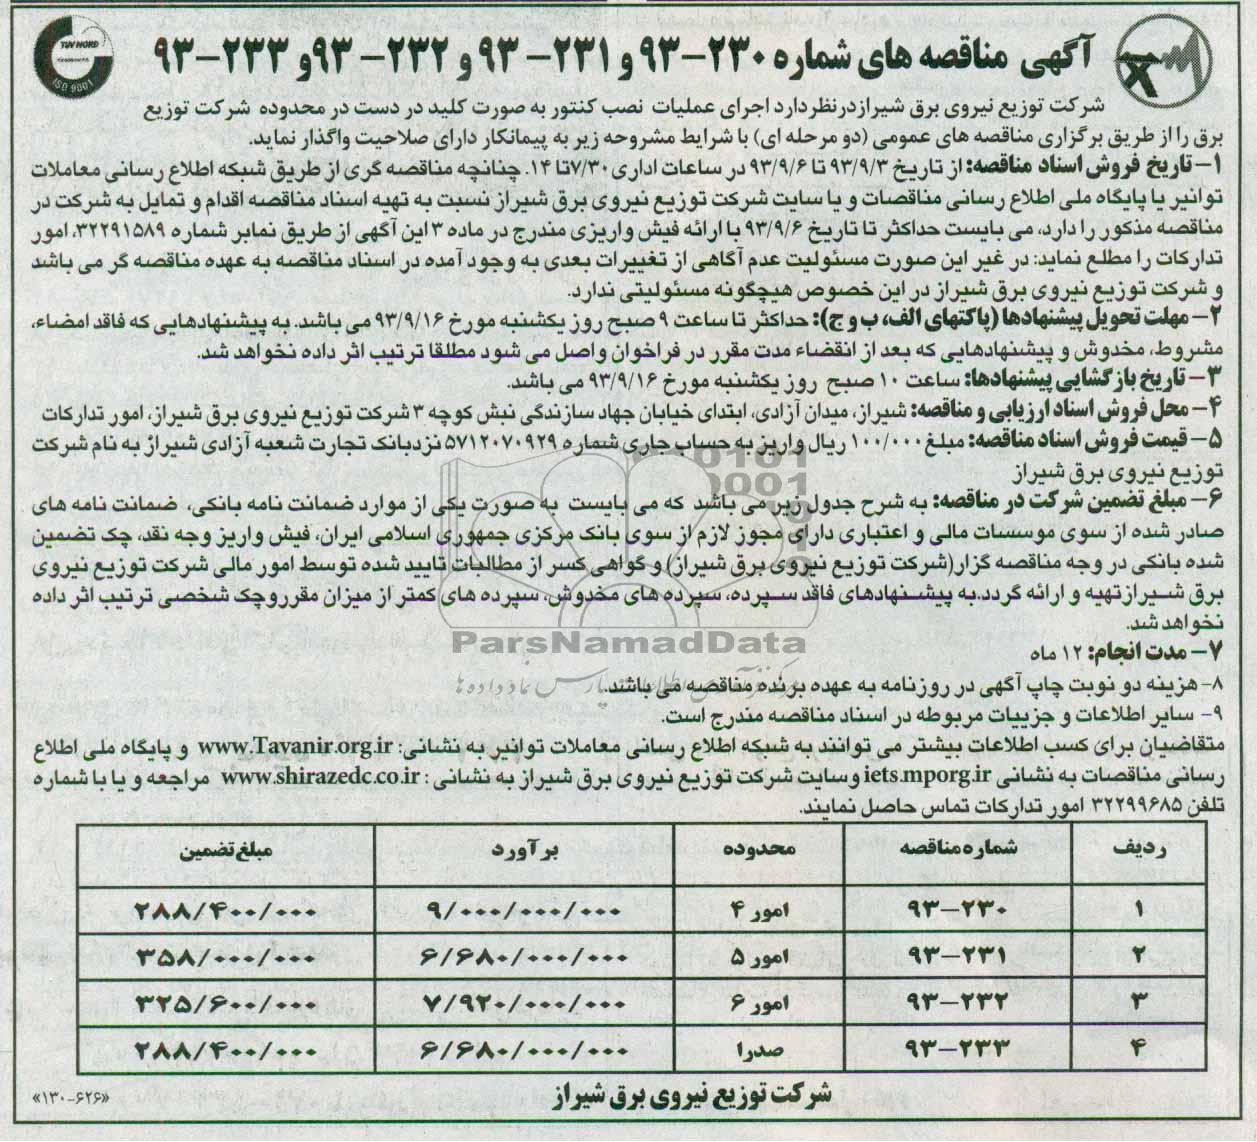 آگهی مناقصه های شماره ۲۳۰-۹۳ و ۲۳۱-۹۳ و ۲۳۲-۹۳ و ۲۳۳-۹۳
TÜV NORD
ISO 9001
شرکت توزیع نیروی برق شیراز در نظر دارد اجرای عملیات نصب کنتور به صورت کلید در دست در محدوده شرکت توزیع
برق را از طریق برگزاری مناقصه های عمومی (دو مرحله ای) با شرایط مشروحه زیر به پیمانکار دارای صلاحیت واگذار نماید.
۱- تاریخ فروش اسناد مناقصه: از تاریخ ۹۳/۹/۳ تا ۹۳/۹/۶ در ساعات اداری ۷/۳۰ تا ۱۴. چنانچه مناقصه گری از طریق شبکه اطلاع رسانی معاملات
توانیر یا پایگاه ملی اطلاع رسانی مناقصات و یا سایت شرکت توزیع نیروی برق شیراز نسبت به تهیه اسناد مناقصه اقدام و تمایل به شرکت در
مناقصه مذکور را دارد، می بایست حداکثر تا تاریخ ۹۳/۹/۶ با ارائه فیش واریزی مندرج در ماده ۳ این آگهی از طریق نمابر شماره ۳۲۲۹۱۵۸۹، امور
تدارکات را مطلع نماید: در غیر این صورت مسئولیت عدم آگاهی از تغییرات بعدی به وجود آمده در اسناد مناقصه به عهده مناقصه گر می باشد
و شرکت توزیع نیروی برق شیراز در این خصوص هیچگونه مسئولیتی ندارد.
۲- مهلت تحویل پیشنهادها (پاکتهای الف، ب و ج): حداکثر تا ساعت ۹ صبح روز یکشنبه مورخ ۹۳/۹/۱۶ می باشد. به پیشنهادهایی که فاقد امضاء،
مشروط، مخدوش و پیشنهادهایی که بعد از انقضاء مدت مقرر در فراخوان واصل می شود مطلقا ترتیب اثر داده نخواهد شد.
۳- تاریخ بازگشایی پیشنهادها: ساعت ۱۰ صبح روز یکشنبه مورخ ۹۳/۹/۱۶ می باشد.
۴- محل فروش اسناد ارزیابی و مناقصه: شیراز، میدان آزادی، ابتدای خیابان جهاد سازندگی نبش کوچه ۳ شرکت توزیع نیروی برق شیراز، امور تدارکات
۵- قیمت فروش اسناد مناقصه: مبلغ ۱۰۰/۰۰۰ ریال واریز به حساب جاری شماره ۵۷۱۲۰۷۰۹۲۹ نزد بانک تجارت شعبه آزادی شیراز به نام شرکت
توزیع نیروی برق شیراز
۶- مبلغ تضمین شرکت در مناقصه: به شرح جدول زیر می باشد که می بایست به صورت یکی از موارد ضمانت نامه بانکی، ضمانت نامه های
صادر شده از سوی موسسات مالی و اعتباری دارای مجوز لازم از سوی بانک مرکزی جمهوری اسلامی ایران، فیش واریز وجه نقد، چک تضمین
شده بانکی در وجه مناقصه گزار(شرکت توزیع نیروی برق شیراز) و گواهی کسر از مطالبات تایید شده توسط امور مالی شرکت توزیع نیروی
برق شیراز تهیه و ارائه گردد. به پیشنهادهای فاقد سپرده، سپرده های مخدوش، سپرده های کمتر از میزان مقرر و چک شخصی ترتیب اثر داده
نخواهد شد.
ParsNamadData
۷- مدت انجام: ۱۲ ماه
۸- هزینه دو نوبت چاپ آگهی در روزنامه به عهده برنده مناقصه می باشد.
۹- سایر اطلاعات و جزییات مربوطه در اسناد مناقصه مندرج است.
متقاضیان برای کسب اطلاعات بیشتر می توانند به شبکه اطلاع رسانی معاملات توانیر به نشانی: www.Tavanir.org.ir و پایگاه ملی اطلاع
رسانی مناقصات به نشانی iets.mporg.ir و سایت شرکت توزیع نیروی برق شیراز به نشانی: www.shirazedc.co.ir مراجعه و یا با شماره
تلفن ۳۲۲۹۹۶۸۵ امور تدارکات تماس حاصل نمایند.
ردیف شماره مناقصه محدوده برآورد مبلغ تضمین
۱ ۹۳-۲۳۰ امور ۴ ۹/۰۰۰/۰۰۰/۰۰۰ ۲۸۸/۴۰۰/۰۰۰
۲ ۹۳-۲۳۱ امور ۵ ۶/۶۸۰/۰۰۰/۰۰۰ ۳۵۸/۰۰۰/۰۰۰
۳ ۹۳-۲۳۲ امور ۶ ۷/۹۲۰/۰۰۰/۰۰۰ ۳۲۵/۶۰۰/۰۰۰
۴ ۹۳-۲۳۳ صدرا ۶/۶۸۰/۰۰۰/۰۰۰ ۲۸۸/۴۰۰/۰۰۰
شرکت توزیع نیروی برق شیراز
«۱۳۰-۶۲۶»